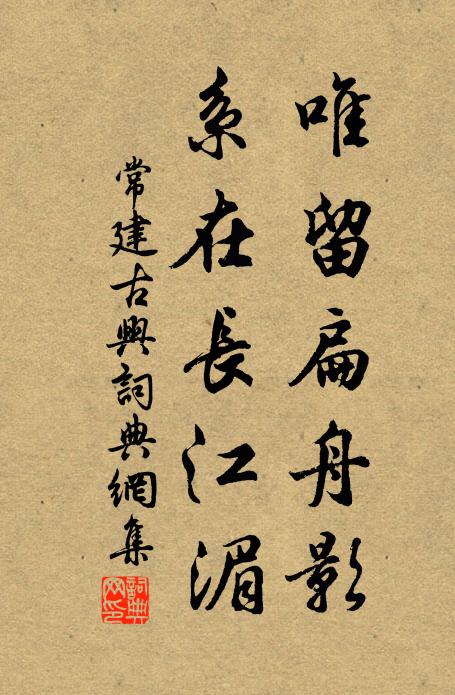 唯留扁舟影
系在長江湄
常建古興詞典網集
詞典
网印